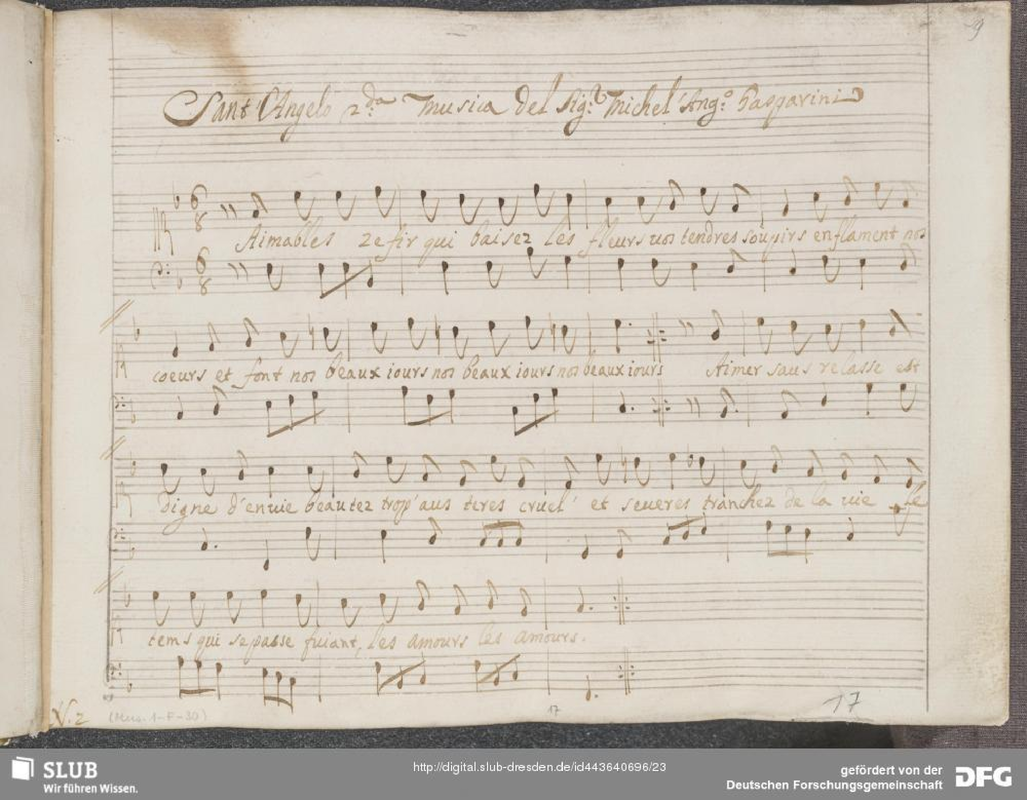 9
Sant Angelo 2.da Musica del Sig.r Michel Ang.o Gasparini
6
8
Aimables Zefir qui baisez les fleurs uos tendres soupirs enflament nos
6
8
coeurs et font nos beaux iours nos beaux iours nos beaux iours Aimer saus relasse est
digne d'enuie beautez trop' aus teres cruel' et seueres tranchez de la uie le
tems qui se passe fuiant, les amours les amours.
V. 2
(Mus. 1-F-30)
17
17
SLUB
Wir führen Wissen.
http://digital.slub-dresden.de/id443640696/23
gefördert von der
Deutschen Forschungsgemeinschaft
DFG